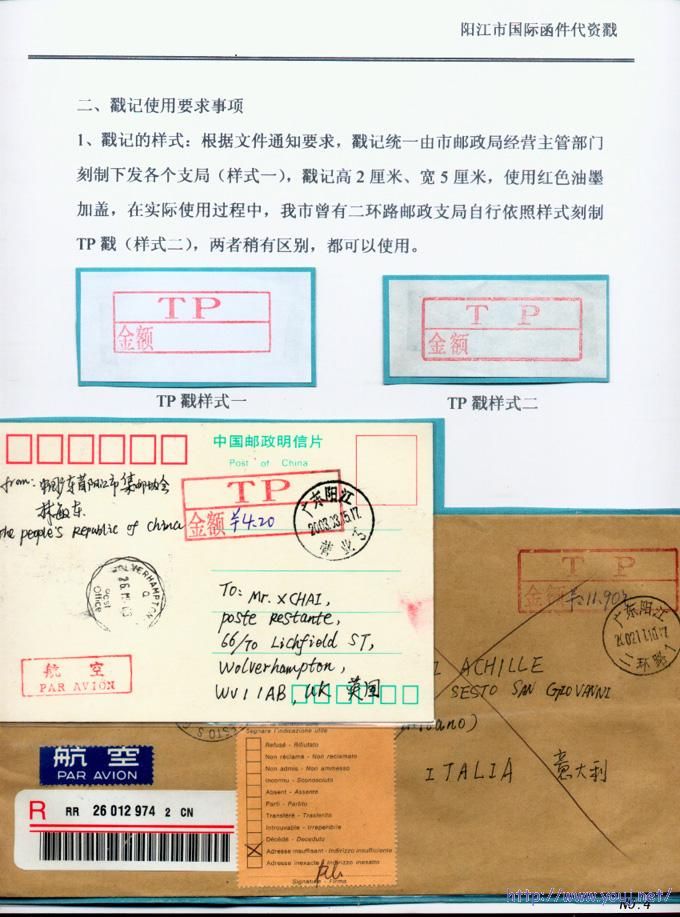 阳江市国际函件代资戳
二、戳记使用要求事项
1、戳记的样式：根据文件通知要求，戳记统一由市邮政局经营主管部门
刻制下发各个支局（样式一），戳记高2厘米、宽5厘米，使用红色油墨
加盖，在实际使用过程中，我市曾有二环路邮政支局自行依照样式刻制
TP戳（样式二），两者稍有区别，都可以使用。
TP
金额
T P
金额
TP 戳样式一
TP 戳样式二
中国邮政明信片
Post of China
from: 中国广东省阳江市集邮协会
林
The people's Republic of China
TP
金额 ¥4.20
广东阳江
营业5
WOLVERHAMPTON
Post
Office
航 空
PAR AVION
To: Mr. XCHAI,
Poste Restante,
66/70 Lichfield ST,
Wolverhampton,
WV1 1AB, UK 英国
T P
金额
广东阳江
二环路1
ACHILLE
SESTO SAN GIOVANNI
ITALIA 意大利
航 空
PAR AVION
R RR 26 012 974 2 CN
Segnare l'indicazione utile
Refusé - Rifiutato
Non réclamé - Non reclamato
Non admis - Non ammesso
Inconnu - Sconosciuto
Absent - Assente
Parti - Partito
Transféré - Trasferito
Introuvable - Irreperibile
Décédé - Deceduto
Adresse insuffisant - Indirizzo insufficiente
Adresse inexacte - Indirizzo inesatto
Signature - Firma
http://www.youj.net/
NO. 4